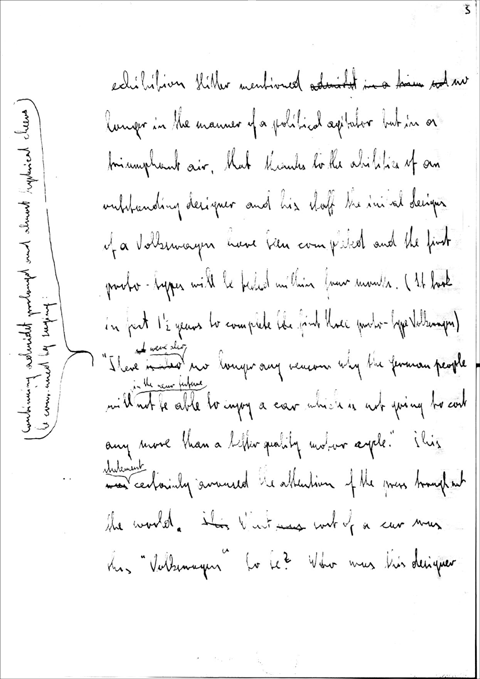 3
exhibition Hitler mentioned admidst in a no
longer in the manner of a political agitator but in a
triumphant air, that thanks to the abilities of an
outstanding designer and his staff the initial designs
of a Volkswagen have been completed and the first
proto-types will be tested within four months. (It took
in fact 1½ years to complete the first three proto-type Volkswagen)
"There no longer any reasons why the german people
in the near future
will not be able to enjoy a car which is not going to cost
any more than a better quality motor cycle." This
statement
was certainly aroused the attention of the press troughout
the world. This was sort of a car was
this "Volkswagen" to be? Who was this designer
Continuing admidst prolonged and almost hysterical cheers
he by saying: